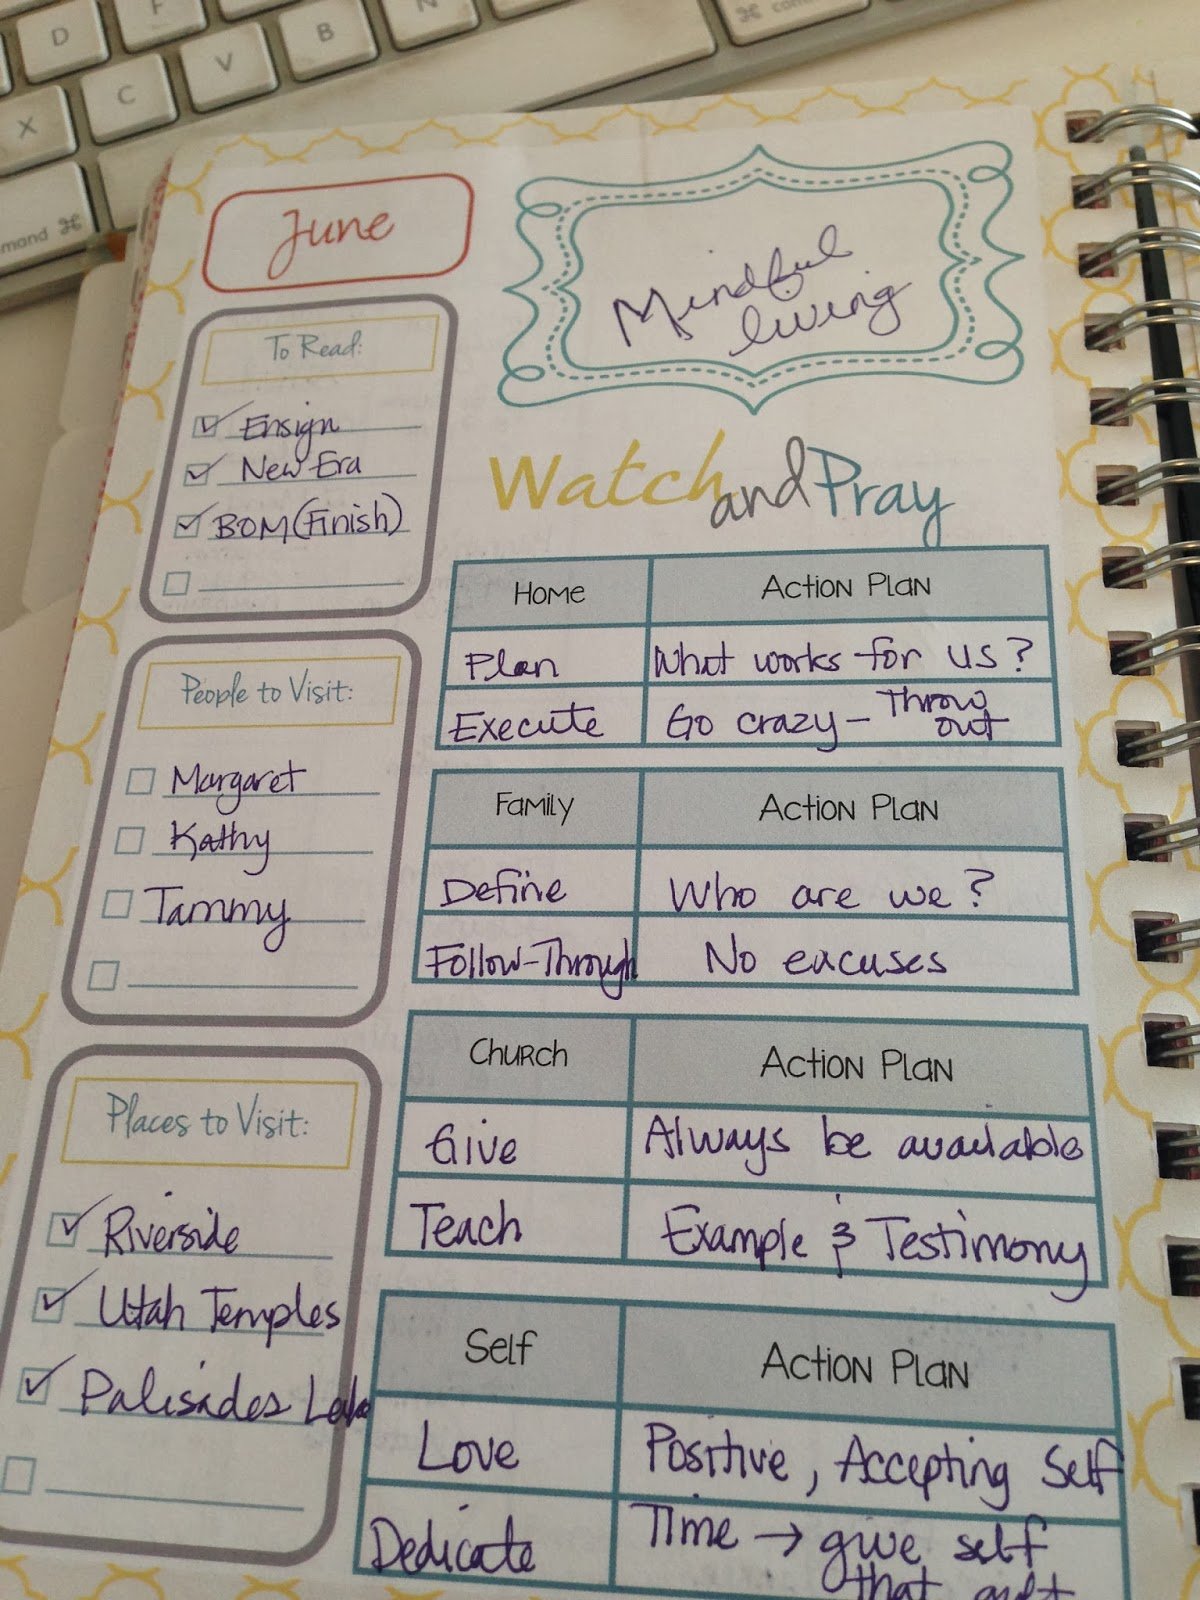 D
F
X
C
V
B
N
⌘ comm
mmand ⌘
June
To Read:
Ensign
New Era
BOM (Finish)
People to Visit:
Margaret
Kathy
Tammy
Places to Visit:
Riverside
Utah Temples
Palisades Lake
Mindful
living
Watch and Pray
Home Action Plan
Plan What works for us?
Execute Go crazy - Throw
out
Family Action Plan
Define Who are we?
Follow-Through No excuses
Church Action Plan
Give Always be available
Teach Example & Testimony
Self Action Plan
Love Positive, Accepting Self
Dedicate Time → give self
that gift